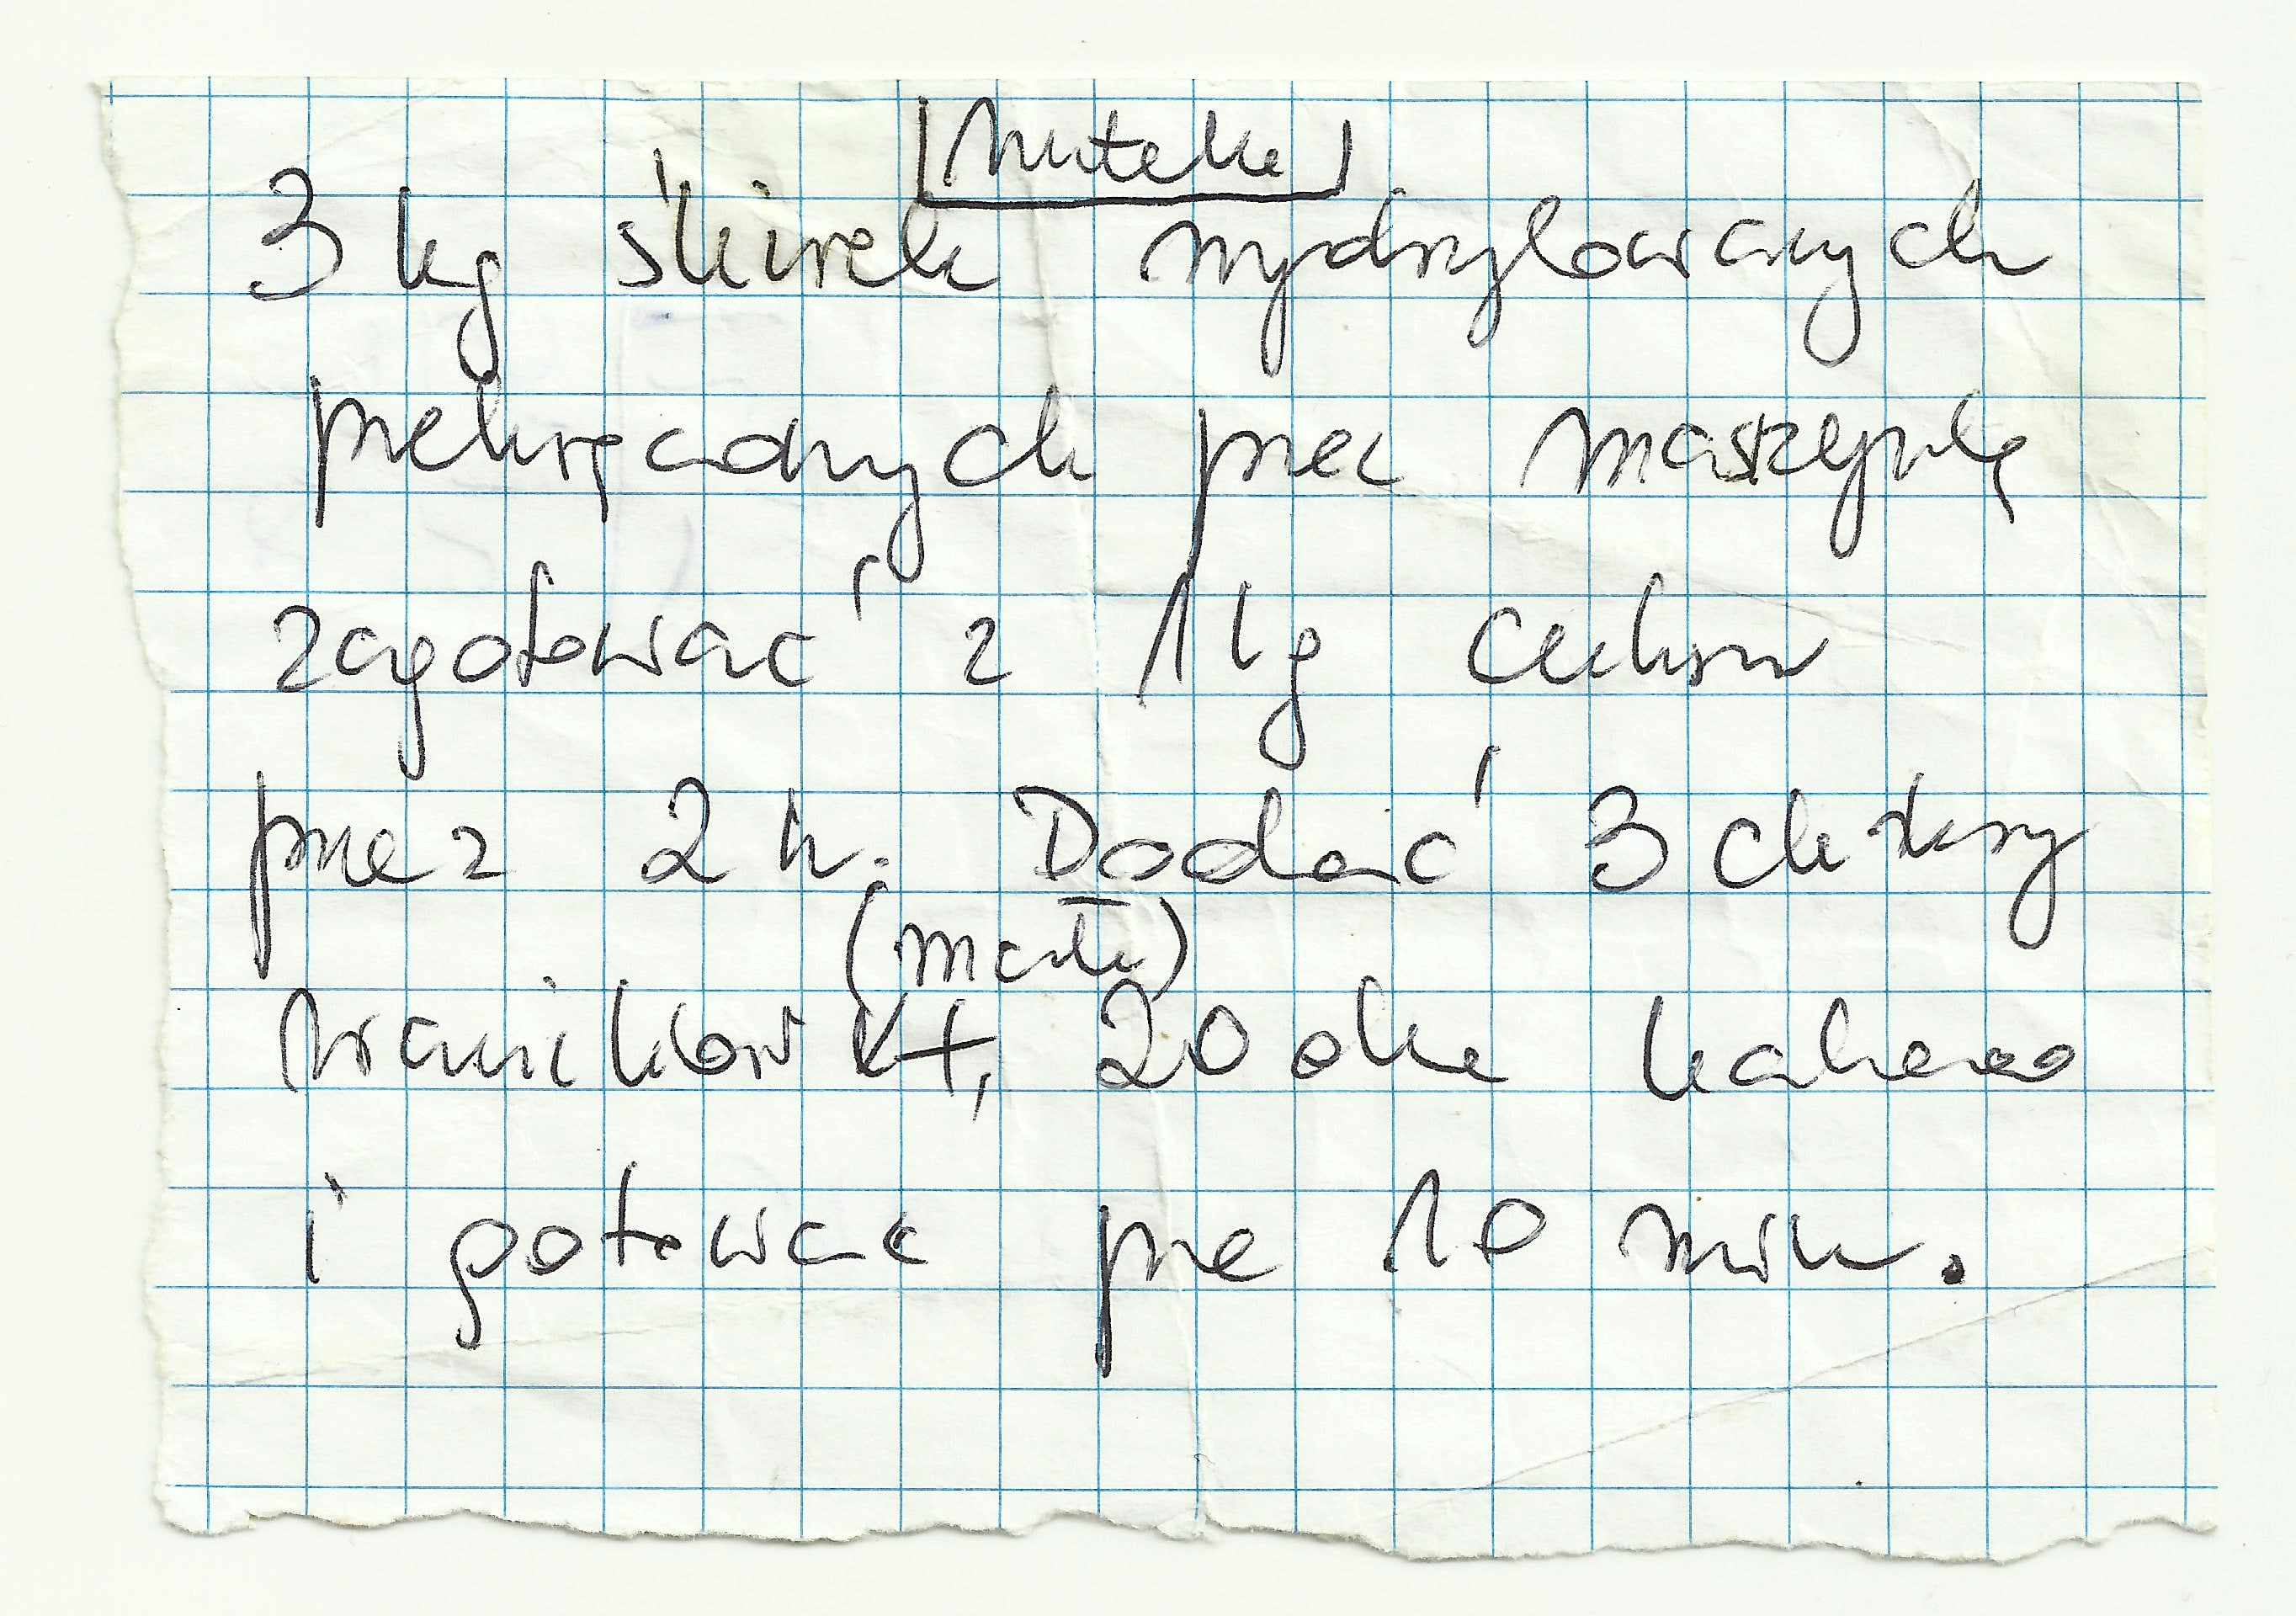 Nutella
3 kg śliwek wydrylowanych
przekręconych przez maszynkę
zagotować z 1 kg cukru
przez 2 h. Dodać 3 cukry
(małe)
waniliowe, 20 dkg kakao
i gotować prze 10 min.